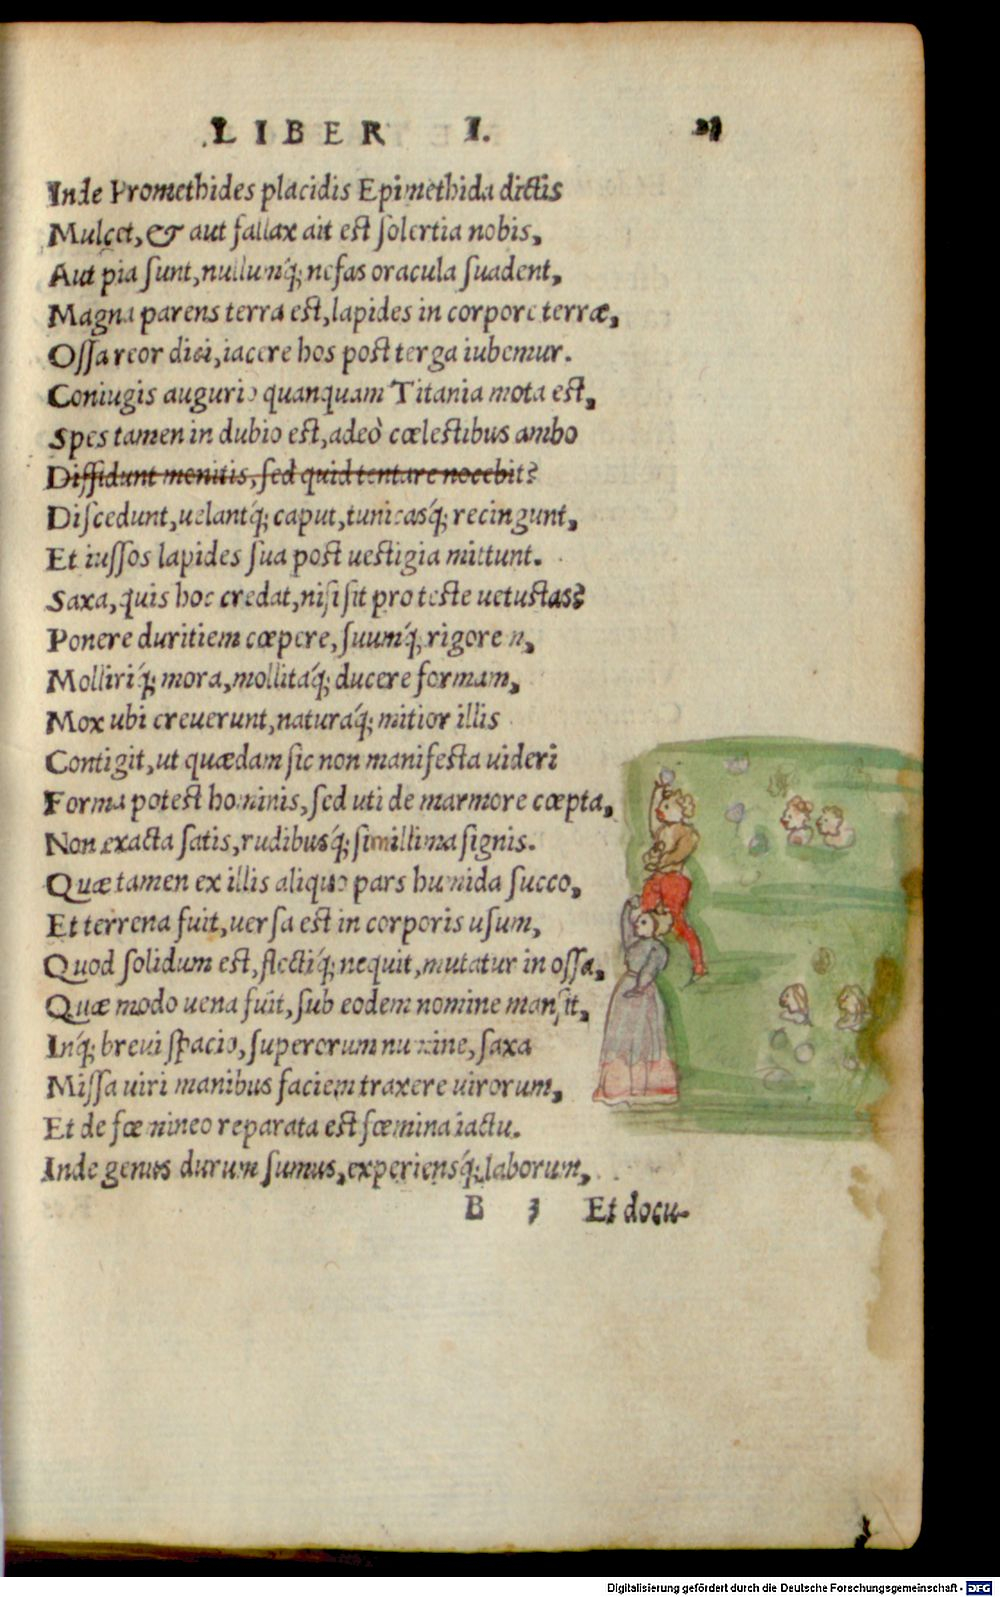 LIBER I. 21
Inde Promethides placidis Epimethida dictis
Mulcet, & aut fallax ait est solertia nobis,
Aut pia sunt, nullumq́; nefas oracula suadent,
Magna parens terra est, lapides in corpore terræ,
Ossa reor dici, iacere hos post terga iubemur.
Coniugis augurio quanquam Titania mota est,
Spes tamen in dubio est, adeò cœlestibus ambo
Diffidunt monitis, sed quid tentare nocebit?
Discedunt, uelantq́; caput, tunicasq́; recingunt,
Et iussos lapides sua post uestigia mittunt.
Saxa, quis hoc credat, nisi sit pro teste uetustas?
Ponere duritiem cœpere, suumq́; rigorem,
Molliriq́; mora, mollitaq́; ducere formam,
Mox ubi creuerunt, naturaq́; mitior illis
Contigit, ut quædam sic non manifesta uideri
Forma potest hominis, sed uti de marmore cœpta,
Non exacta satis, rudibusq́; simillima signis.
Quæ tamen ex illis aliquo pars humida succo,
Et terrena fuit, uersa est in corporis usum,
Quod solidum est, flectiq́; nequit, mutatur in ossa,
Quæ modo uena fuit, sub eodem nomine mansit,
Inq́; breui spacio, superorum numine, saxa
Missa uiri manibus faciem traxere uirorum,
Et de fœmineo reparata est fœmina iactu.
Inde genus durum sumus, experiensq́; laborum,
B 3 Et docu-
Digitalisierung gefördert durch die Deutsche Forschungsgemeinschaft - DFG